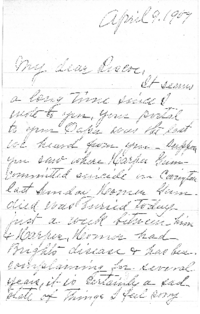 April 9. 1907
My dear Roscoe,
It seems
a long time since I
wrote to you, your postal
to your Papa was the last
we heard from you - suppose
you saw where Harper
committed suicide on
last Sunday, Homer
died was buried today
just a week between him
& Harper, Homer had
Brights disease & has been
complaining for several
years, it is certainly a sad
state of things I feel very